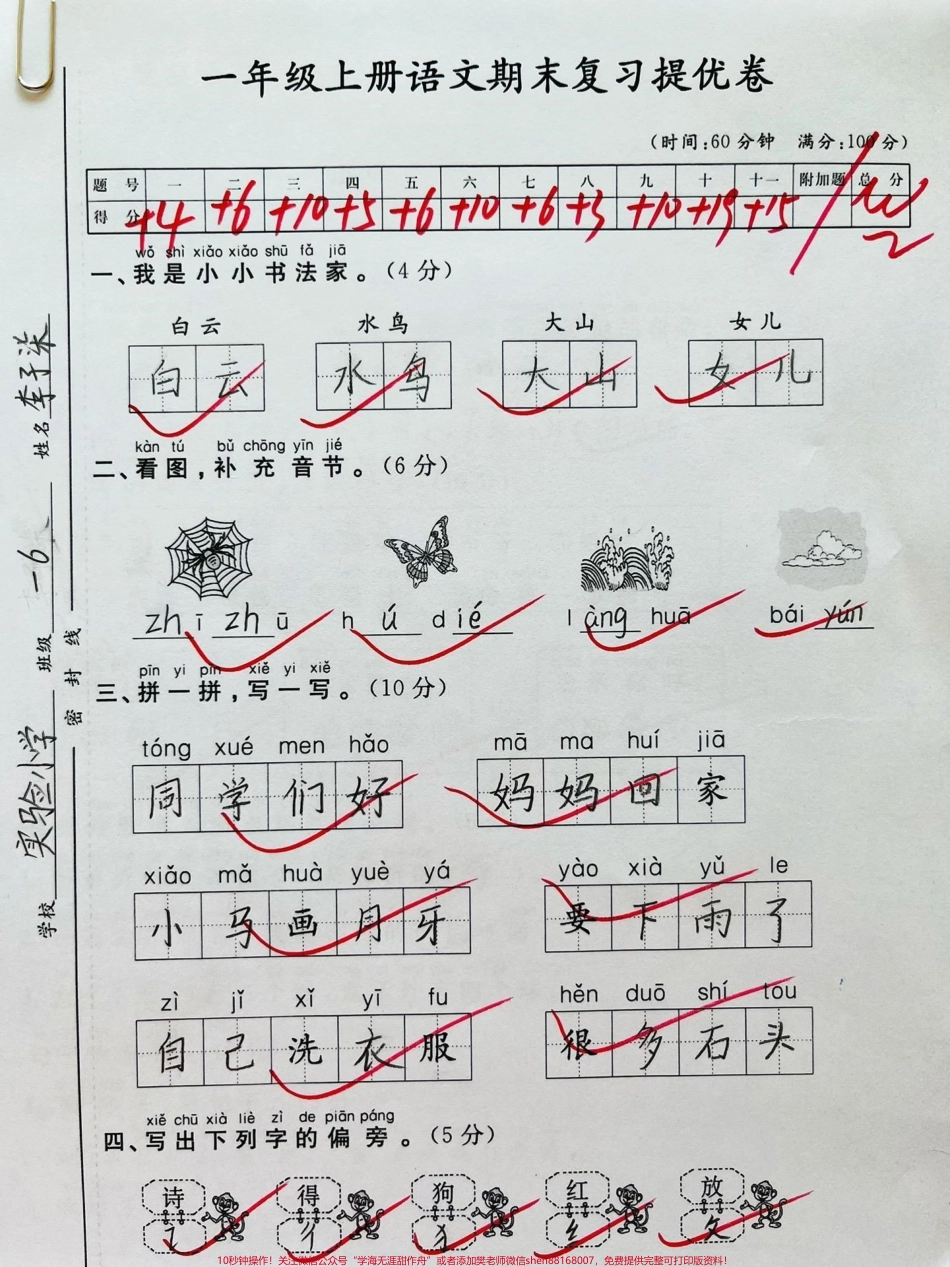 一年级上册语文期末复习提优卷
(时间:60分钟 满分:100分)
题号 一 二 三 四 五 六 七 八 九 十 十一 附加题 总分
得分 +4 +6 +10 +5 +6 +10 +6 +3 +10 +19 +15
wǒ shì xiǎo xiǎo shū fǎ jiā
一、我是小小书法家。(4分)
白云 水鸟 大山 女儿
白云 水鸟 大山 女儿
kàn tú bǔ chōng yīn jié
二、看图,补充音节。(6分)
zhī zhū hú dié làng huā bái yún
pīn yi pīn xiě yi xiě
三、拼一拼,写一写。(10分)
tóng xué men hǎo mā ma huí jiā
同学们好 妈妈回家
xiǎo mǎ huà yuè yá yào xià yǔ le
小马画月牙 要下雨了
zì jǐ xǐ yī fu hěn duō shí tou
自己洗衣服 很多石头
xiě chū xià liè zì de piān páng
四、写出下列字的偏旁。(5分)
诗 得 狗 红 放
讠 彳 犭 纟 攵
学校 实验小学 班级 一6 姓名 李子柒
密封线
10秒钟操作!关注微信公众号“学海无涯甜作舟”或者添加樊老师微信shen88168007,免费提供完整可打印版资料!